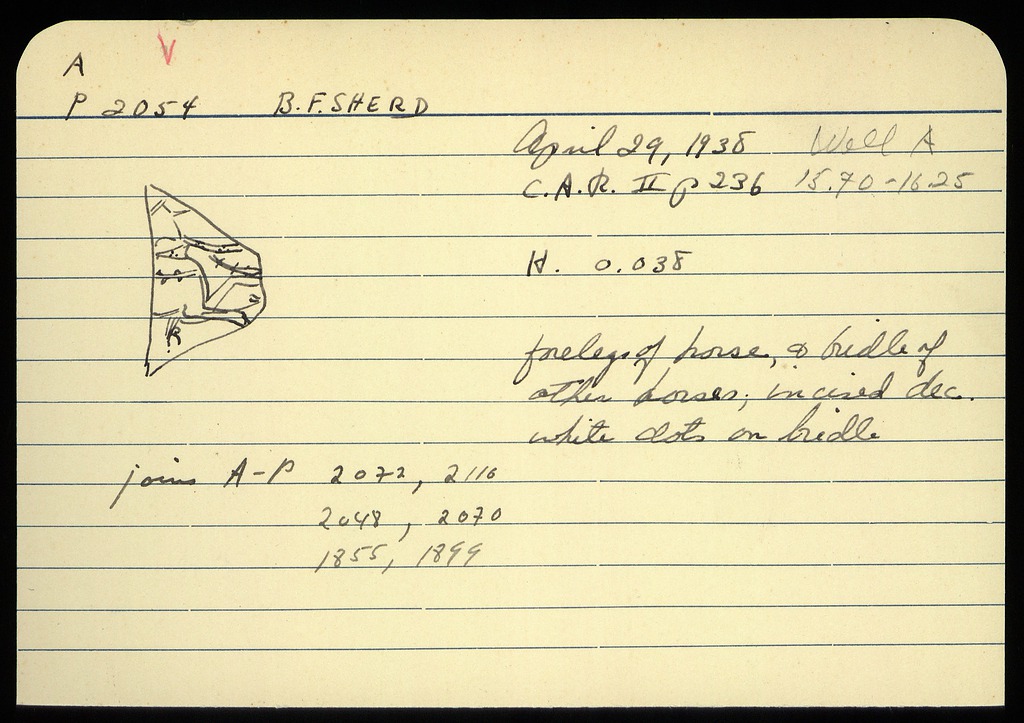 A V
P 2054 B.F. SHERD
April 29, 1938 Well A
C.A.R. II p 236 15.70-16.25
H. 0.038
forelegs of horse, & bridle of
other horses; incised dec.
white dots on bridle
joins A-P 2072, 2116
2048, 2070
1855, 1899